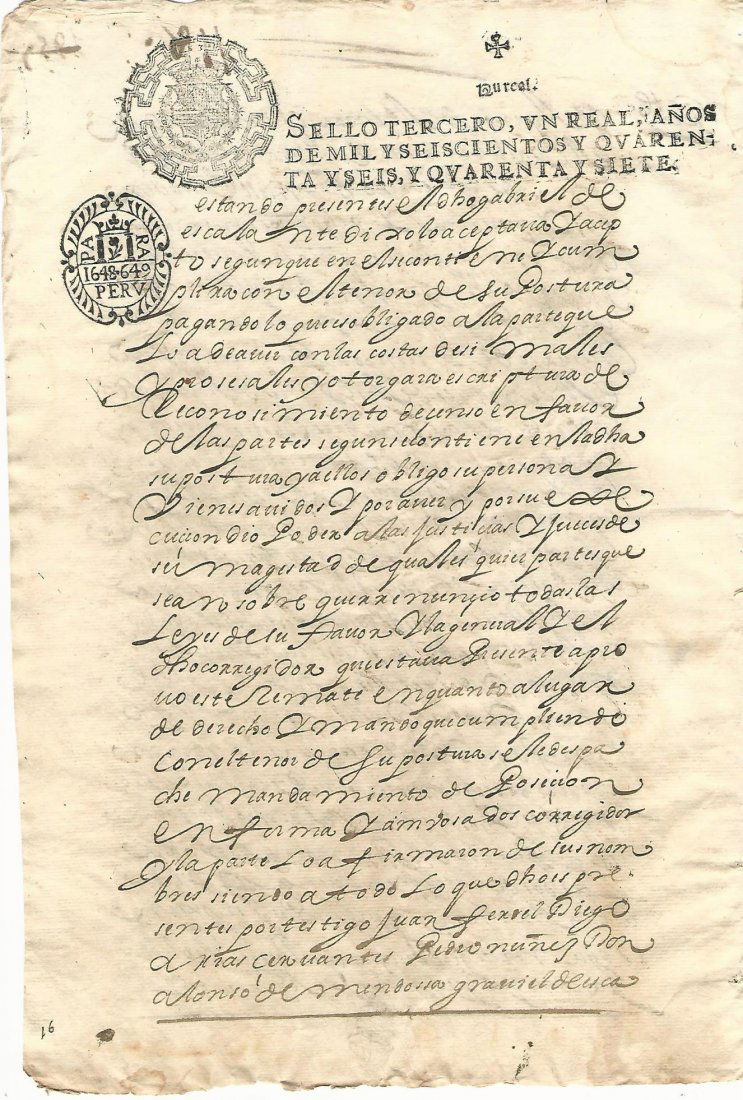 Un real.
SELLO TERCERO, VN REAL, AÑOS
DE MIL Y SEISCIENTOS Y QVAREN-
TA Y SEIS, Y QVARENTA Y SIETE.
PARA
1648-649
PERV
estando presentes el dho gabriel de
escalante dixo lo aceptava Y acep
to segun que en el se contiene Y cum
plira con el tenor de su Postura
pagando lo que es obligado a la parte que
Lo a de aver con las costas desimales
y prosesales y otorgara escriptura de
Reconosimiento de censo en favor
de las partes segun se contiene en la dha
su postura y a ello obligo su persona Y
Vienes avidos Y por aver y por su e
cucion dio Poder a las Justicias Y Jueces de
su magestad de quales quier partes que
sean sobre que rrenuncio todas las
Leyes de su favor Y la general Y el
dho corregidor que estava Presente apro
vo este Remate en quanto a lugar
de derecho Y mando que cumpliendo
con el tenor de su postura se le despa
che mandamiento de Posecion
en forma Y ambos a dos corregidor
Y la parte Lo a firmaron de sus nom
bres siendo a todo Lo que dho es pre-
sentes por testigo Juan Diego
arias cervantes Pedro nuñez Don
alonso de mendossa graviel de esca
16